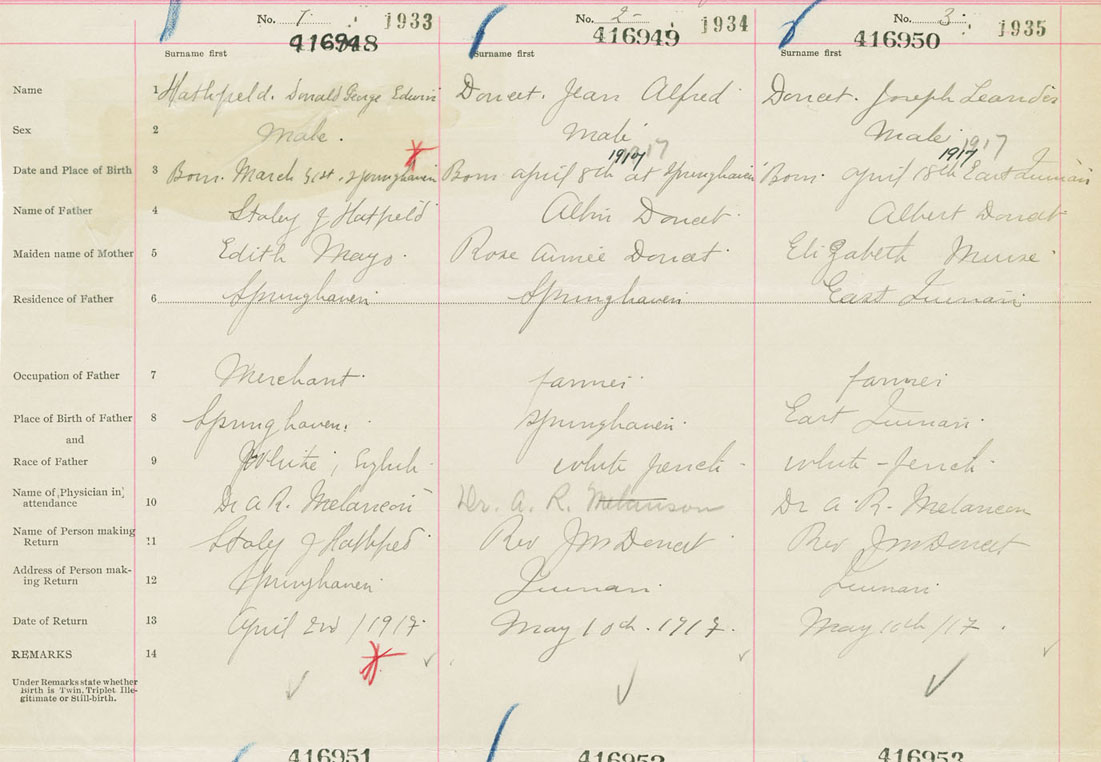 No. 1 1933 No. 2 1934 No. 3 1935
416948 416949 416950
Surname first Surname first Surname first
Name 1 Hathfield. Donald George Edwin Doucet. Jean Alfred Doucet. Joseph Leander
Sex 2 Male. Male Male
1917 1917 1917 1917
Date and Place of Birth 3 Born. March 31st. Springhaven Born april 8th at Springhaven Born. april 18th East
Name of Father 4 Staley J Hatfield Albin Doucet Albert Doucet
Maiden name of Mother 5 Edith Mayo. Rose Aimée Doucet Elizabeth Muise
Residence of Father 6 Springhaven Springhaven East
Occupation of Father 7 Merchant farmer farmer
Place of Birth of Father 8 Springhaven. Springhaven East
and
Race of Father 9 White, English white french white - french
Name of Physician in attendance 10 Dr A R. Melancon Dr. A. R. Melanson Dr A. R. Melancon
Name of Person making Return 11 Staley J Hathfield Rev J M Doucet Rev J M Doucet
Address of Person making Return 12 Springhaven
Date of Return 13 April 2nd /1917 May 10th. 1917. May 10th /17.
REMARKS 14
Under Remarks state whether
Birth is Twin, Triplet Ille-
gitimate or Still-birth.
416951 416952 416953